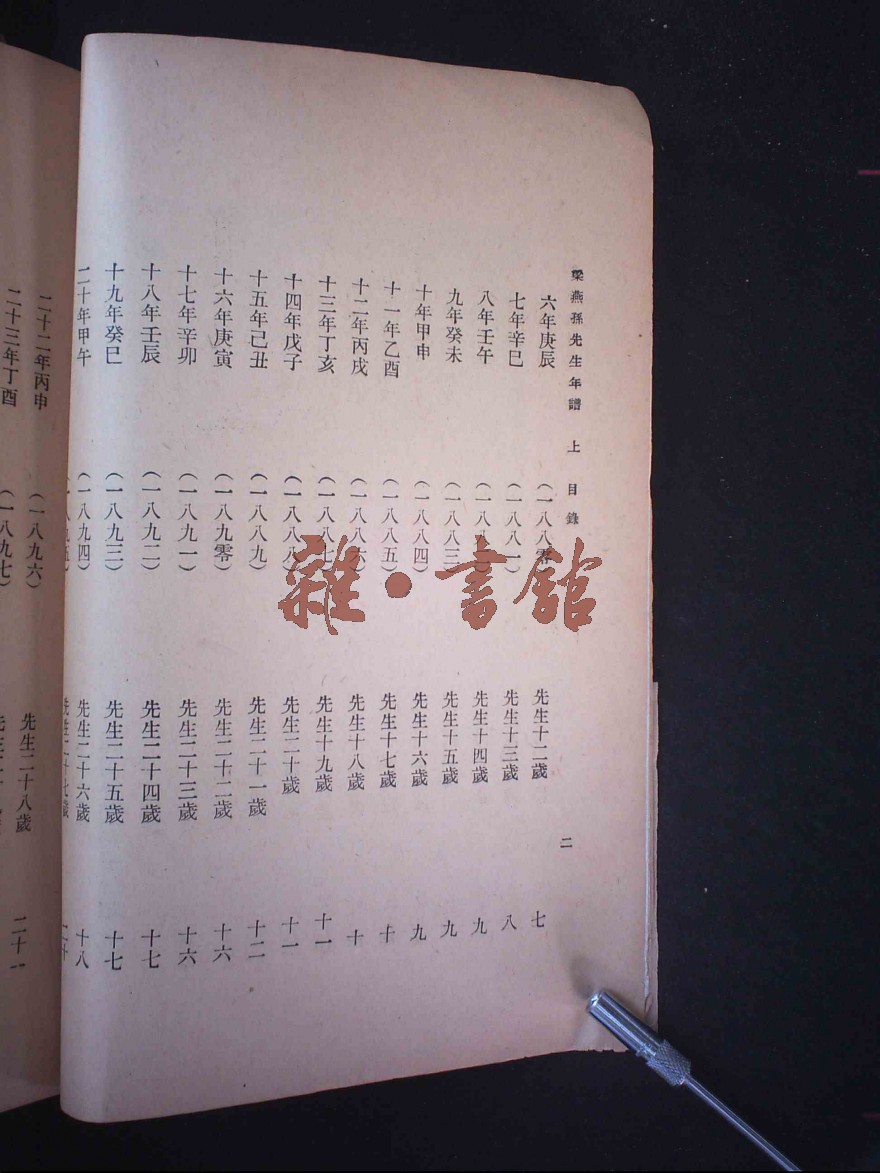 梁燕孫先生年譜 上 目錄 二
六年庚辰 (一八八零) 先生十二歲 七
七年辛巳 (一八八一) 先生十三歲 八
八年壬午 (一八八二) 先生十四歲 九
九年癸未 (一八八三) 先生十五歲 九
十年甲申 (一八八四) 先生十六歲 九
十一年乙酉 (一八八五) 先生十七歲 十
十二年丙戌 (一八八六) 先生十八歲 十
十三年丁亥 (一八八七) 先生十九歲 十一
十四年戊子 (一八八八) 先生二十歲 十一
十五年己丑 (一八八九) 先生二十一歲 十二
十六年庚寅 (一八九零) 先生二十二歲 十六
十七年辛卯 (一八九一) 先生二十三歲 十六
十八年壬辰 (一八九二) 先生二十四歲 十七
十九年癸巳 (一八九三) 先生二十五歲 十七
二十年甲午 (一八九四) 先生二十六歲 十八
(一八九五) 先生二十七歲 二十
二十二年丙申 (一八九六) 先生二十八歲 二十一
二十三年丁酉 (一八九七)
雜·書館